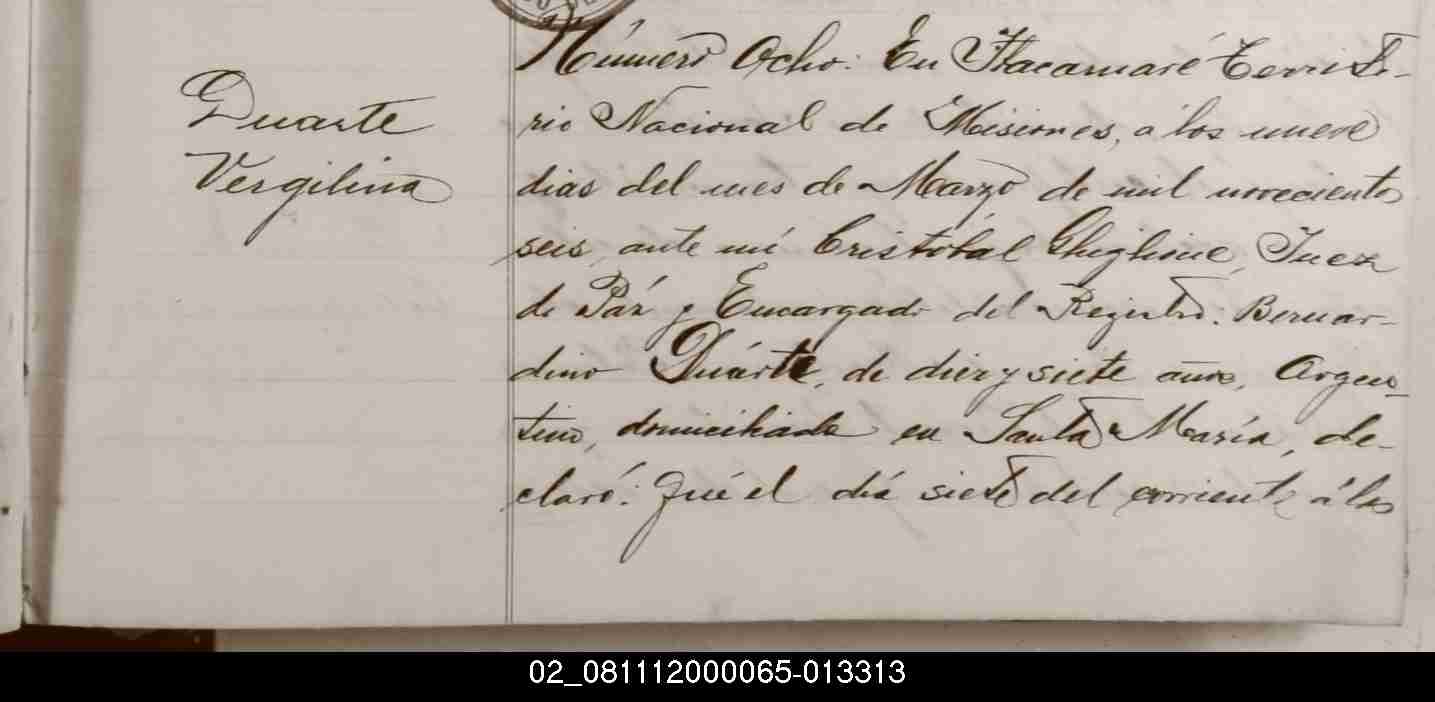 Duarte
Vergilina
Número Ocho: En Itacaruaré Territo-
rio Nacional de Misiones, á los nueve
dias del mes de Marzo de mil novecientos
seis, ante mí Cristóbal Ghiglione, Juez
de Páz y Encargado del Registro: Bernar-
dino Duárte, de diez y siete años, Argen-
tino, domiciliado en Santa María, de-
claró: Qué el día siete del corriente á las
02_081112000065-013313